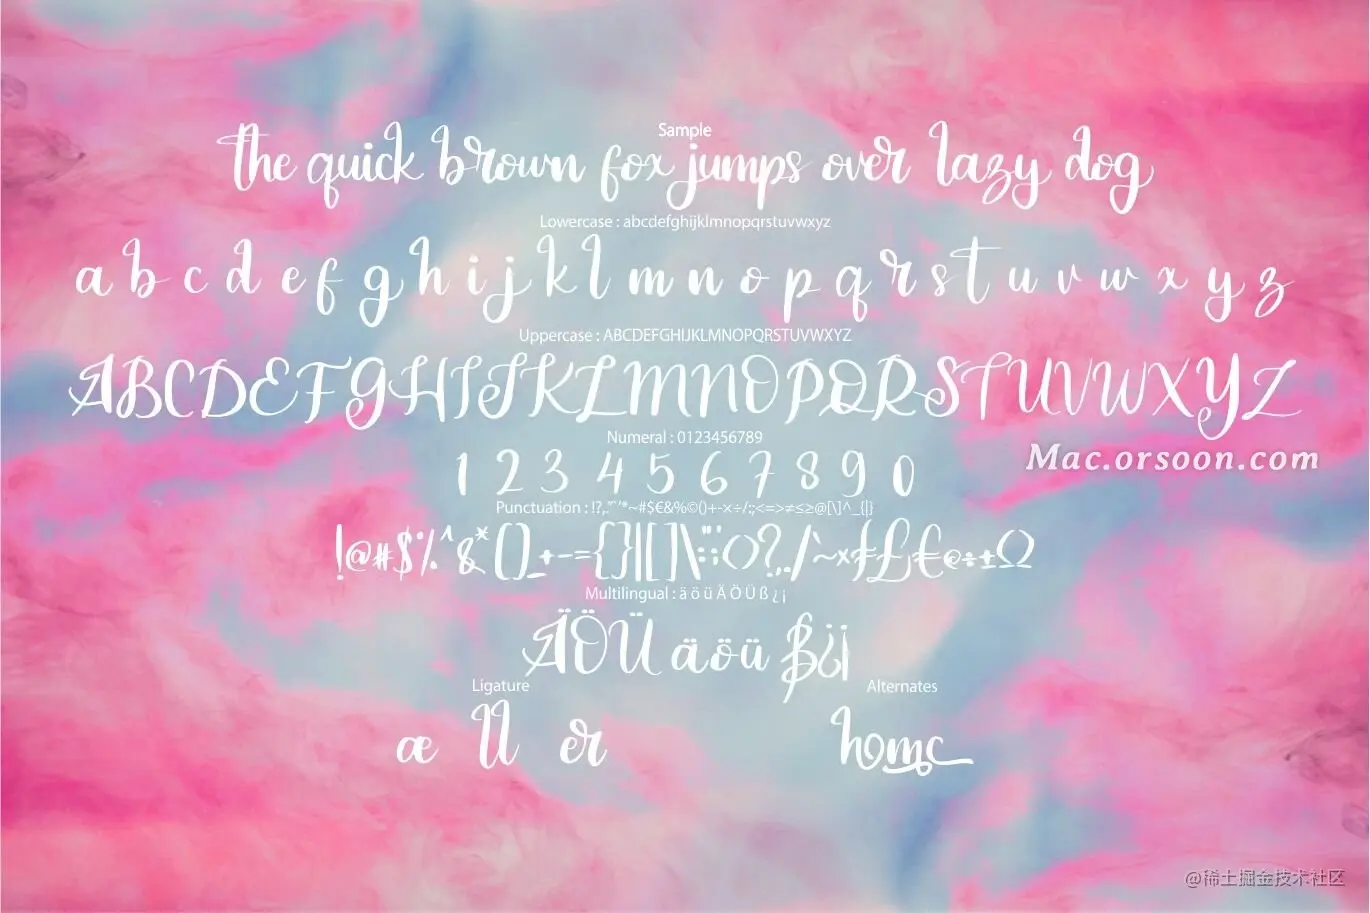 Sample
the quick brown fox jumps over lazy dog
Lowercase : abcdefghijklmnopqrstuvwxyz
a b c d e f g h i j k l m n o p q r s t u v w x y z
Uppercase : ABCDEFGHIJKLMNOPQRSTUVWXYZ
A B C D E F G H I J K L M N O P Q R S T U V W X Y Z
Numeral : 0123456789
Mac.orsoon.com
1 2 3 4 5 6 7 8 9 0
Punctuation : !?,."'"'*~#$€&%©()+-×÷/:;<=>≠≤≥@[\]^_{|}
!@#$%^&*()_+-={}|[]\:";'<>?,./`~×ƒ£€@÷±Ω
Multilingual : ä ö ü Ä Ö Ü ß ¿ ¡
ÄÖÜ äöü ß¿¡
Ligature Alternates
æ ll er home
@稀土掘金技术社区